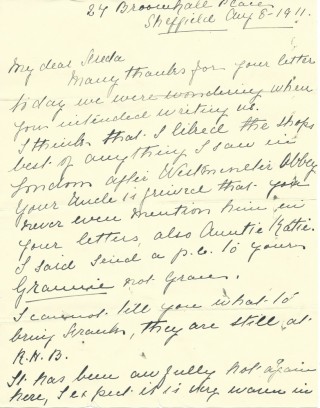 24 Broomhall Place
Sheffield Aug 8-1911.
My dear
Many thanks for your letter
today we were wondering when
you intended writing us.
I think that I liked the shops
best of anything I saw in
London after Westminster Abbey
Your Uncle is grieved that you
never even mention him in
your letters, also Auntie Katie.
I said send a p.c. to yours
not
I cannot tell you what to
bring they are still at
R.H.B.
It has been awfully hot again
here, I expect it is very warm in